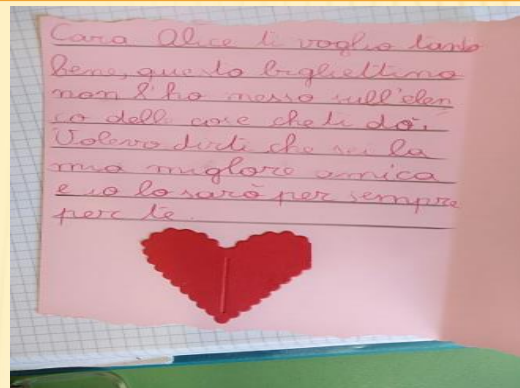 Cara Alice ti voglio tanto
bene, questo bigliettino
non l'ho messo sull'elen
co delle cose che ti dò.
Volevo dirti che sei la
mia miglore amica
e io lo sarò per sempre
per te.